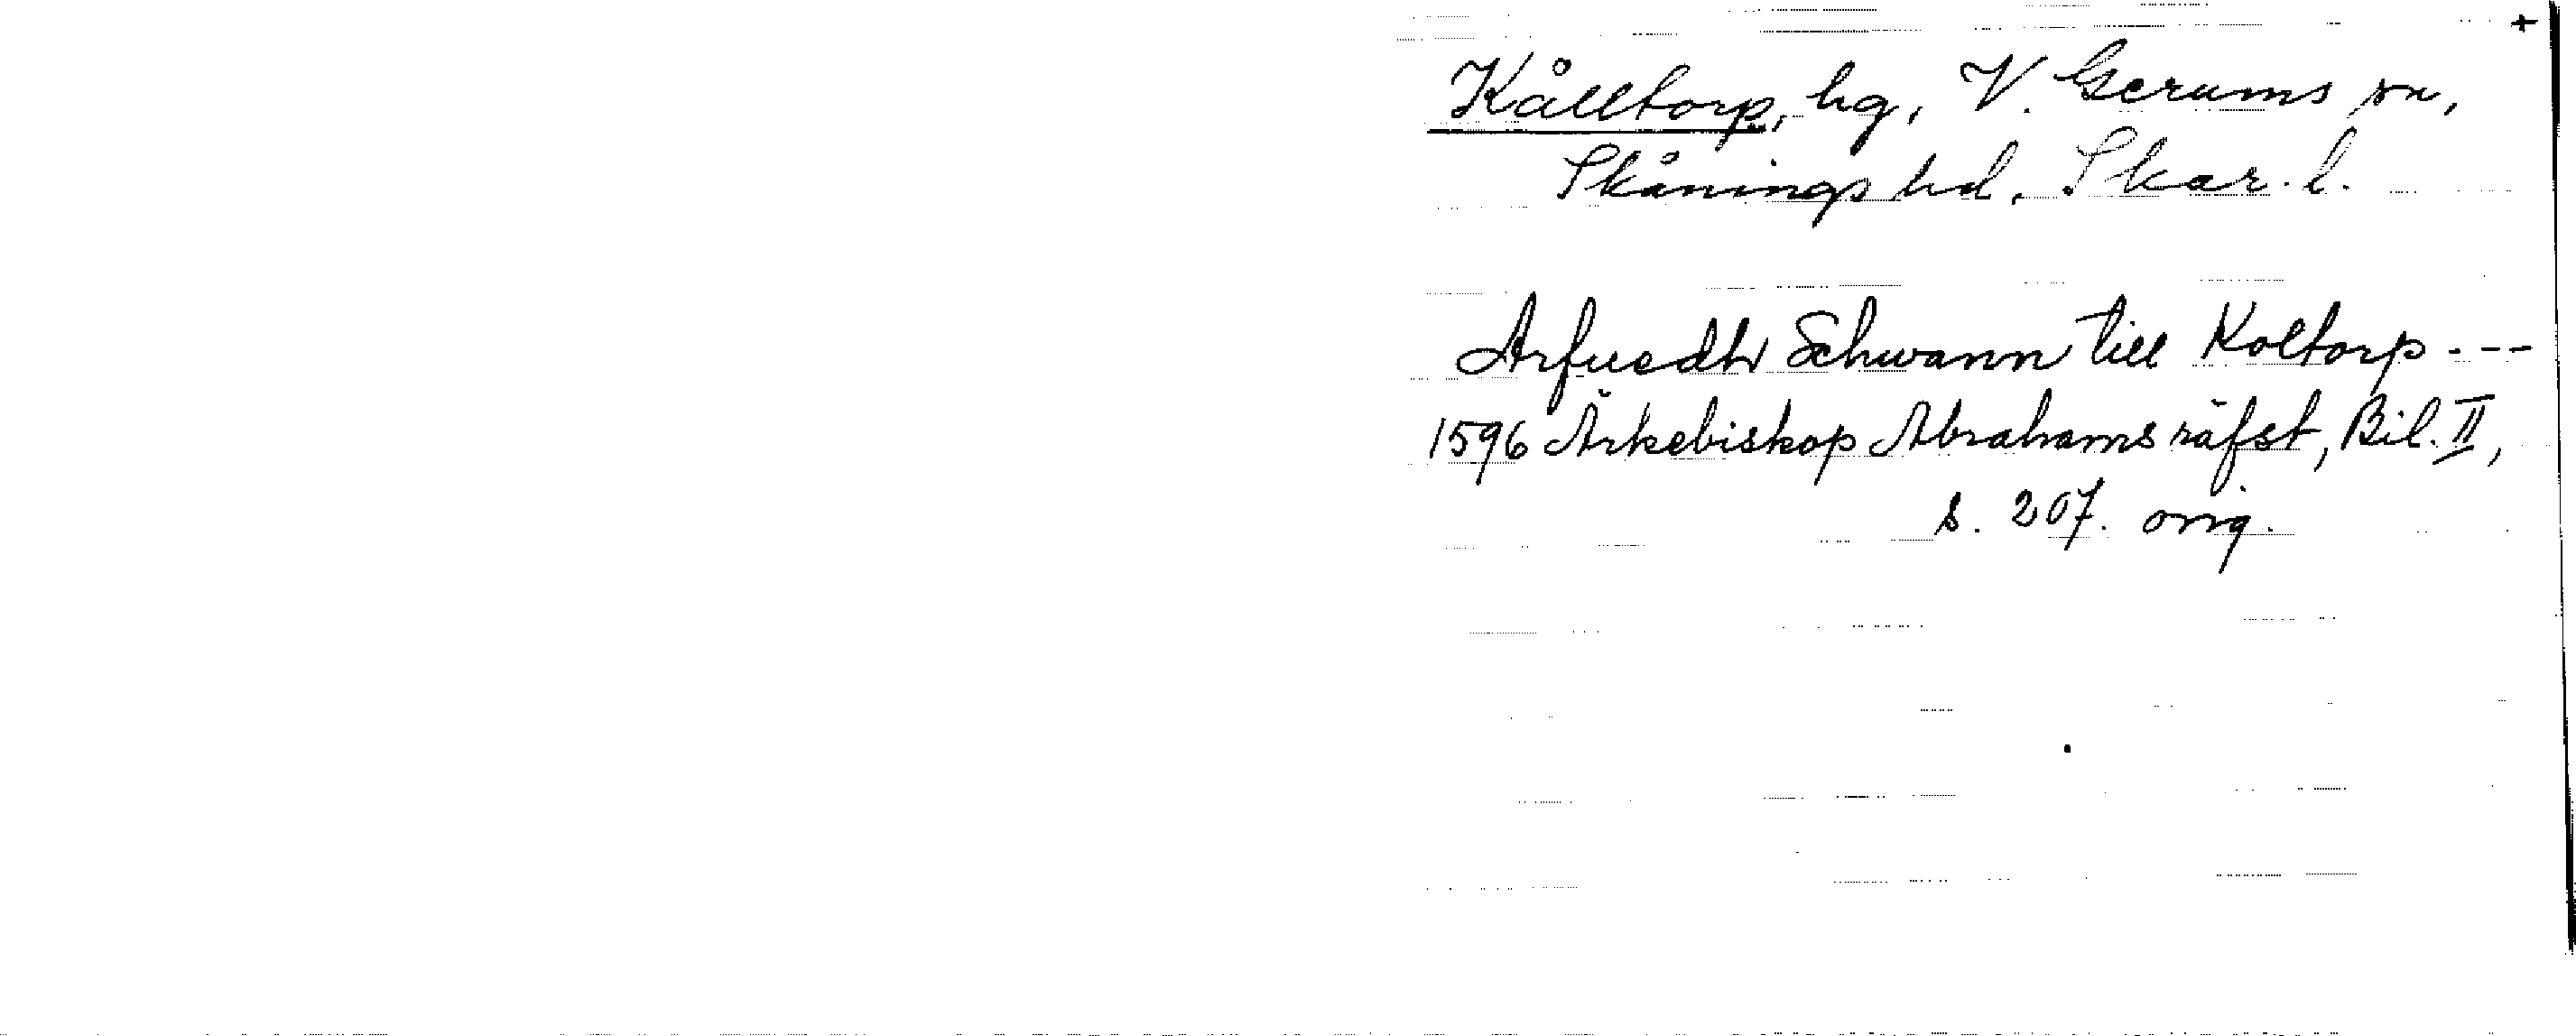 +
Kålltorp, hg, V. Gerums sn,
Skånings hd. Skar. l.
Arfuedh Schwann till Koltorp ---
1596 Ärkebiskop Abrahams räfst, Bil. II,
s. 207. orig.